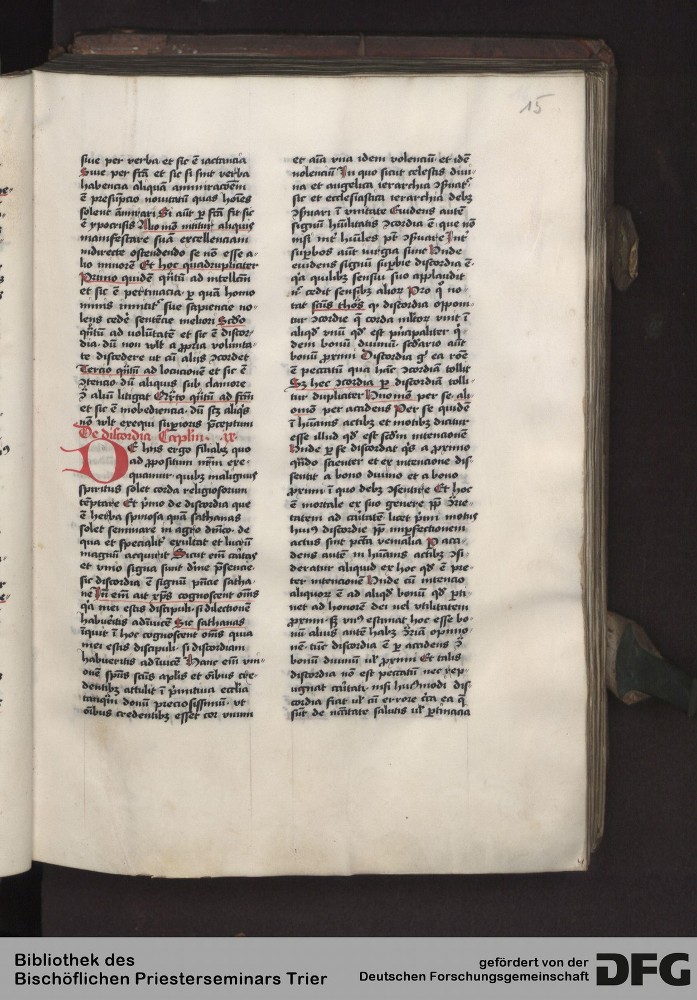 15
siue per verba et sic ē iactancia
Siue per fcā et sic si sint verba
habencia aliquā ammiracōem
ē presūpcio nouitatū quas hoīes
solent āmirari Si aūt ꝑ fcā sit sic
ē ypocrisis Alio mō nititur aliquis
manifestare suā excellenciam
indirecte ostendendo se nō esse a-
lio minorē Et hoc quadrupliciter
Primo quidē qn̄tū ad intellcm̄
et sic ē pertinacia ꝑ quā homo
nimis innitit' sue sapiencie no-
lens cedē sentēcie meliori Scd̄o
qn̄tū ad volūtatē et sic ē discor-
dia dū non wlt a ꝓpria volunta-
te discedere ut cū alijs ↄcordet
Tercio qn̄tū ad locucionē et sic ē
ↄtencio dū aliquis sub clamore
ↄ̄ aliū litigat Qrto qn̄tū ad fcm̄
et sic ē inobediencia dū sꝫ aliq's
nō wlt exequi suꝑioris p̄ceptum
De discordia Caplm̄ .ix.
DE hijs ergo filiabꝫ quo
ad ꝓpositum nr̄m exe-
quamur quibꝫ malignus
spiritus solet corda religiosorum
tēptare Et p̄mo de discordia que
ē herba spinosa quā sathanas
solet seminare in agro dn̄ico de
qua et specialit' exultat et lucrū
magnū acquirit Sicut em̄ caritas
et vnio signa sunt diue p̄sencie
sic discordia ē signū pn̄cie satha-
ne In em̄ ait xp̄s cognoscent om̄s
q'a mei estis discipuli si dilectionē
habueritis adinuicē Sic sathanas
inquit ī hoc cognoscent om̄s quia
mei estis discipuli si discordiam
habueritis adīuicē Hanc em̄ vni-
onē sp̄us scūs aplis et oībus cre-
dentibꝫ attulit ī p̄mitiua ecclia
tanqm̄ donū preciosissimū vt
oībus credentibꝫ esset cor vnum
et aīa vna idem volenciū et idē
nolenciū In quo sicut celestis diui-
na et angelica ierarchia ↄseruat'
sic et ecclesiastica ierarchia debꝫ
ↄseruari ī vnitate Euidens autē
signū hūilitatis ↄcordia ē que nō
nisi int' hūiles pt̄ ↄseruare Int'
suꝑbos aūt iurgia sunt Unde
euidens signū suꝑbie discordia ē
q'a quilibꝫ sensui suo applaudit
nō cedit sensibꝫ alior Pro q' no-
tat scūs thōs q' discordia opponi-
tur ↄcordie q' corda mltor vnit ī
aliqd' vnū qd' est pn̄cipaliter q'-
dem bonū diuinū scd̄ario aūt
bonū ꝓximi Discordia g' ea rōe
ē peccatū qua hāc ↄcordiā tollit
Sꝫ hec ↄcordia ꝑ discordiā tolli-
tur dupliciter Uno mō per se ali-
o mō per accidens Per se quidē
ī hūanis actibꝫ et motibꝫ dicitur
esse illud qd' est scdm̄ intencionē
Unde ꝑ se discordat q's a ꝓximo
qn̄do scienter et ex intencione dis-
sentit a bono diuino et a bono
ꝓximi ī quo debꝫ ↄsentire Et hoc
ē mortale ex suo genere ꝓp̄ ↄ̄rie-
tatem ad caitatē licet p̄mi motus
huiꝰ discordie ꝓp̄ imꝑfectionem
actus sint pctā venialia P acci-
dens autē in hūanis actibꝫ ↄsi-
deratur aliquid ex hoc qd' ē pre-
ter intencionē Unde cū intencio
aliquorꝫ ē ad aliqd' bonū qd' ꝑti-
net ad honorē dei vel vtilitatem
ꝓximi sꝫ vnꝰ estimat hoc esse bo-
nū alius autē habꝫ ↄ̄riā opinio-
nē tūc discordia ē ꝑ accidens ↄ̄
bonū diuinū vl' ꝓximi Et talis
discordia nō est peccatū nec rep-
ugnat caitati nisi huiꝰmodi dis-
cordia fiat vl' cū errore c̄ca ea q'
sūt de nc̄citate salutis vl' ꝑtinacia
Bibliothek des
Bischöflichen Priesterseminars Trier
gefördert von der
Deutschen Forschungsgemeinschaft
DFG